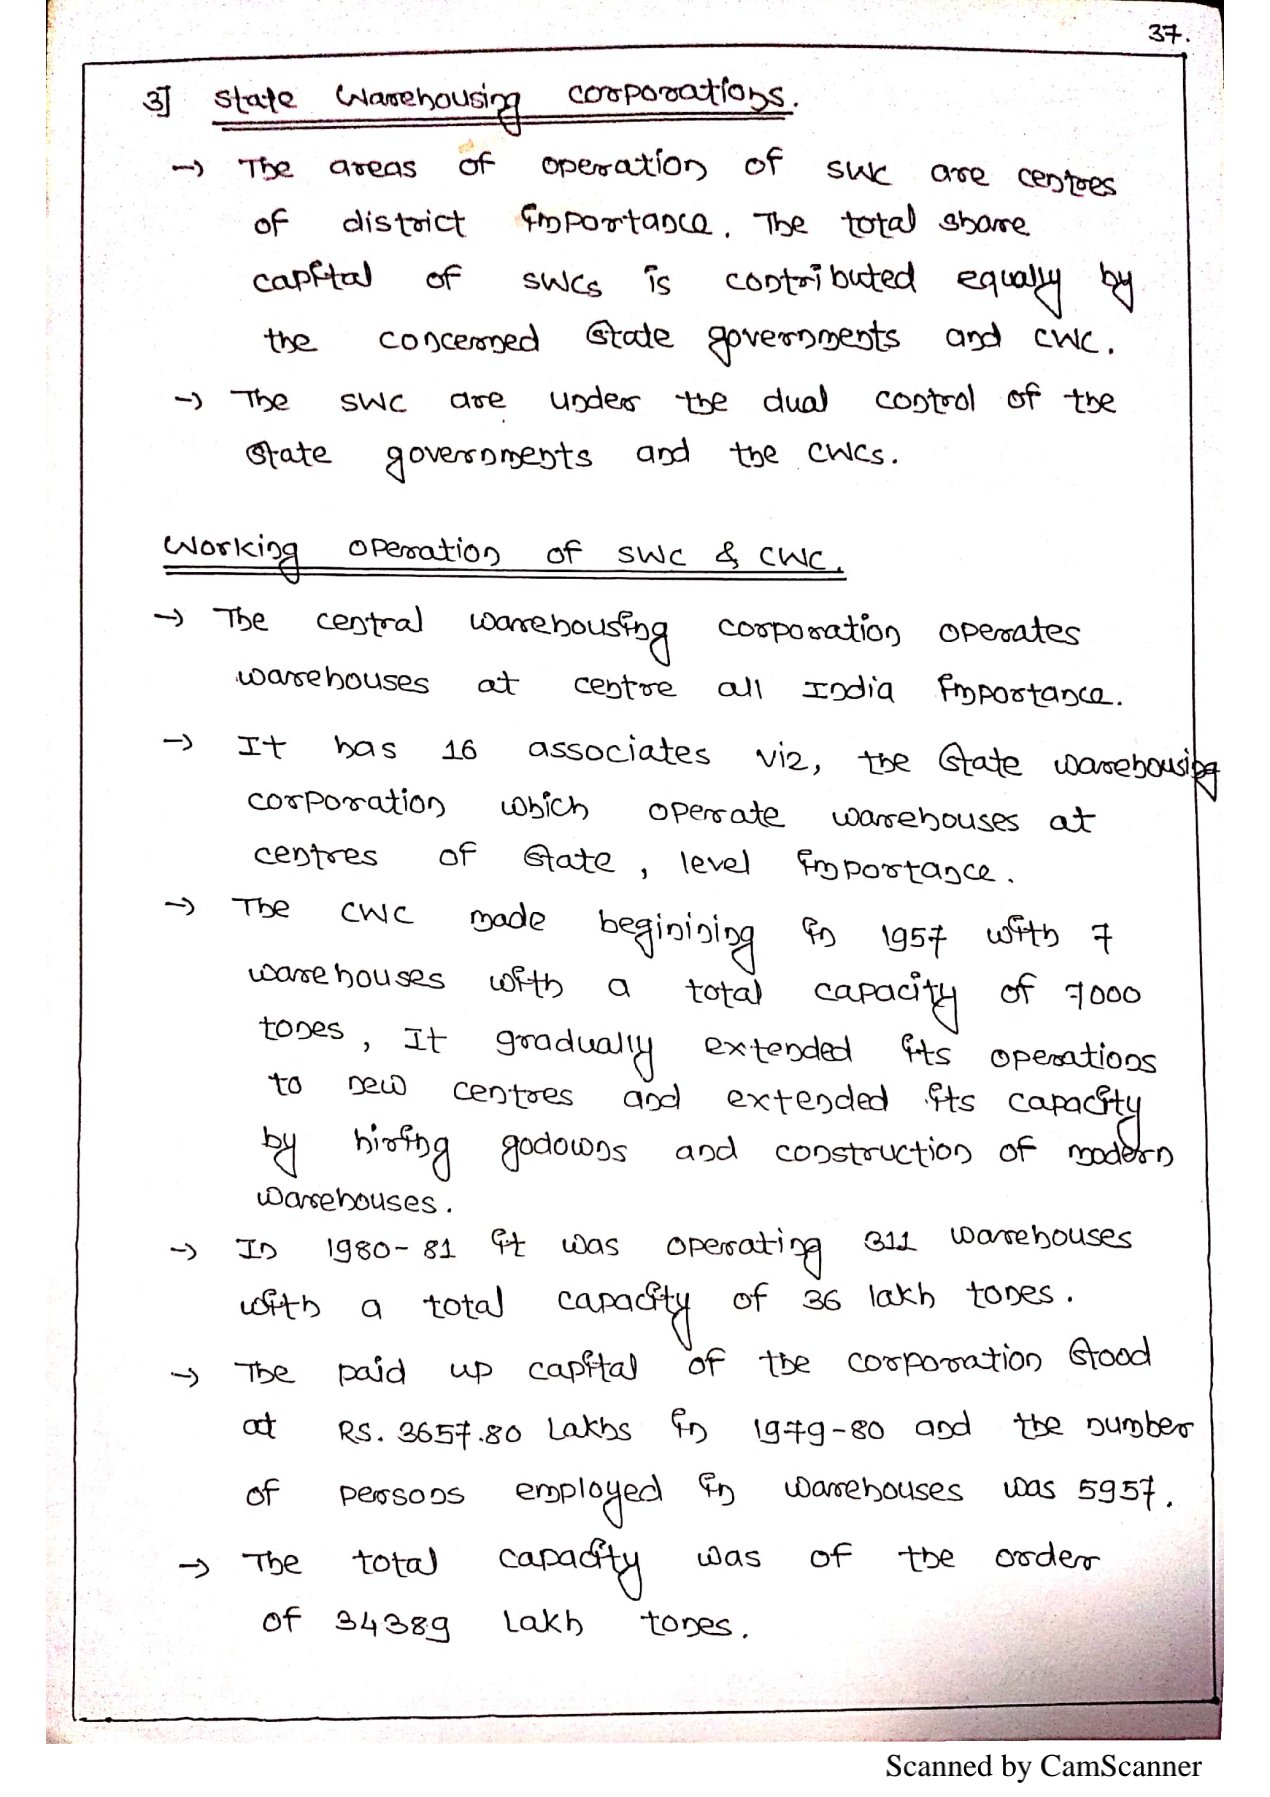 37.
3] State Warehousing corporations.
→ The areas of operation of SWC are centres
of district importance. The total share
capital of SWCs is contributed equally by
the concerned State governments and CWC.
→ The SWC are under the dual control of the
State governments and the CWCs.
Working operation of SWC & CWC.
→ The central warehousing corporation operates
warehouses at centre all India importance.
→ It has 16 associates viz, the State warehousing
corporation which operate warehouses at
centres of State, level importance.
→ The CWC made beginining in 1957 with 7
warehouses with a total capacity of 7000
tones, It gradually extended its operations
to new centres and extended its capacity
by hiring godowns and construction of modern
warehouses.
→ In 1980-81 it was operating 311 warehouses
with a total capacity of 36 lakh tones.
→ The paid up capital of the corporation Stood
at RS. 3657.80 Lakhs in 1979-80 and the number
of persons employed in warehouses was 5957.
→ The total capacity was of the order
of 34389 Lakh tones.
Scanned by CamScanner